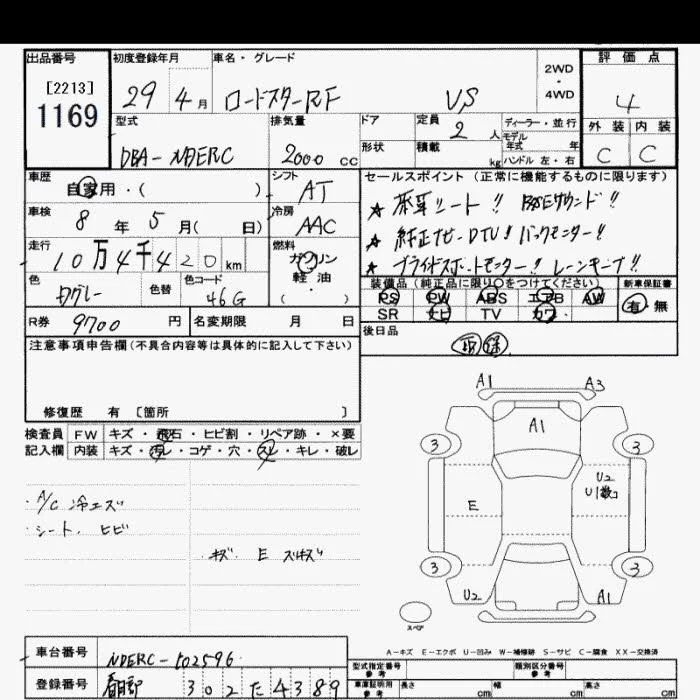 出品番号 初度登録年月 車名・グレード 2WD ・ 4WD 評価点
[2213]
1169
29 4月 ロードスターRF VS 4
型式 排気量 ドア 定員 2人 ディーラー・並行 外装 内装
形状 積載 kg モデル年式 年 ハンドル 左・右
DBA-NDERC 2000 cc C C
車歴 自家用・( ) シフト AT
セールスポイント (正常に機能するものに限ります)
車検 8年 5月( 日) 冷房 AAC
★ 革シート!! BOSEサウンド!!
★ 純正ナビ-DTV!! バックモニター!!
★ ブラインドスポットモニター!! レーンキープ!!
走行 10万4千420km 燃料 ガソリン 軽油 ( )
色 色替 色コード 46G
装備品 (純正品に限り○をつけてください) 新車保証書
PS PW ABS エアB AW 有・無
SR ナビ TV カワ
R券 9700円 名変期限 月 日
後日品
注意事項申告欄(不具合内容等は具体的に記入して下さい)
修復歴 有 〔箇所 〕
検査員 FW キズ・飛石・ヒビ割・リペア跡・×要
記入欄 内装 キズ・汚レ・コゲ・穴・スレ・キレ・破レ
A/C 冷エズ
シート. ヒビ
キズ E
A1 A3
A1
3 3
E U2
U1数コ
3 3
U2 A1
スペア
A-キズ E-エクボ U-凹み W-補修跡 S-サビ C-腐食 XX-交換済
車台番号 NDERC-102596
型式指定番号 参考 類別区分番号 参考
登録番号 春日部 302 た 4389
車庫証明用 参考 長さ cm 幅 cm 高さ cm